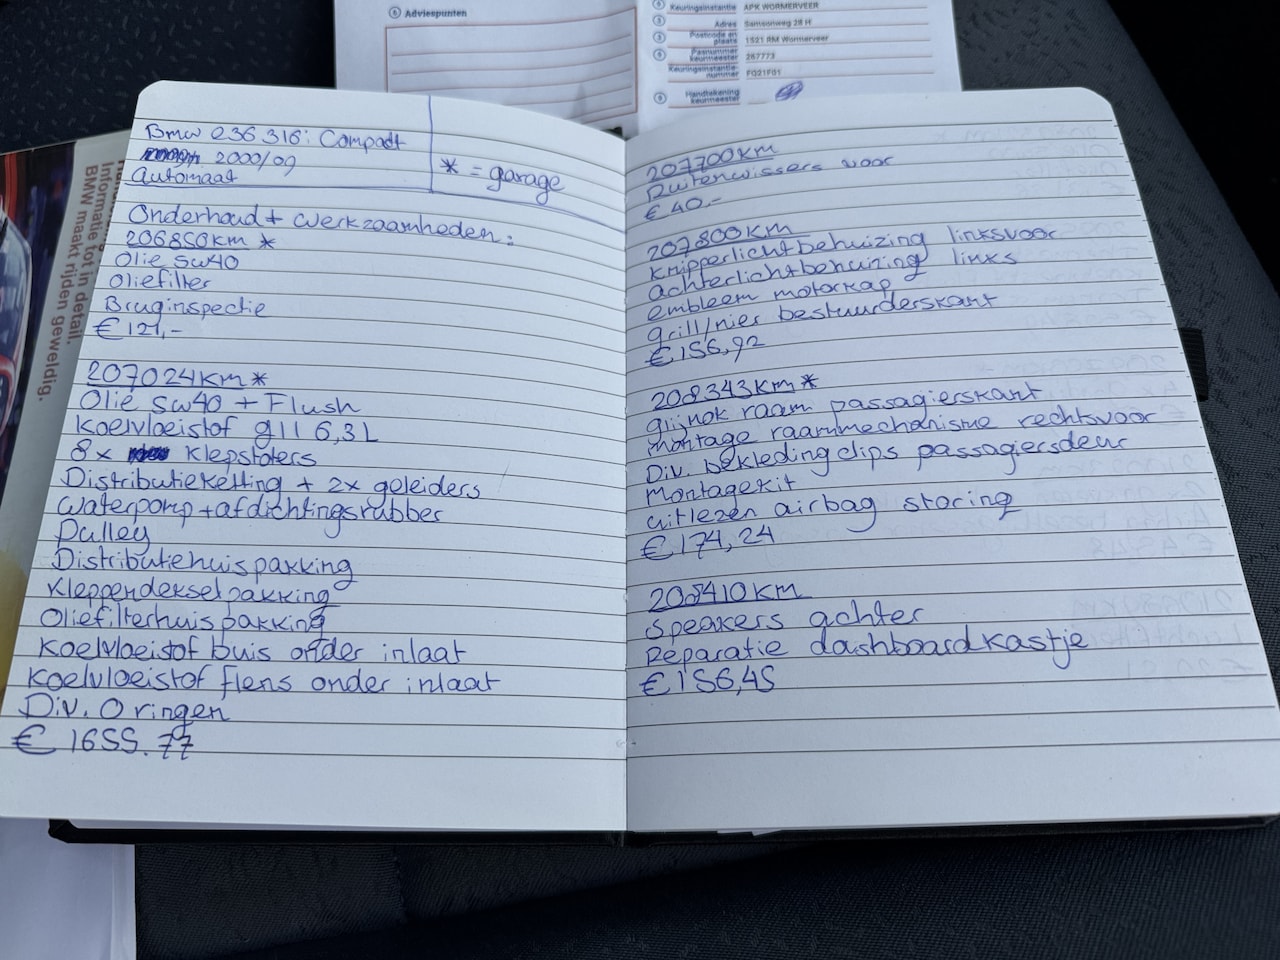 Adviespunten
Keuringsinstantie APK WORMERVEER
Adres Samsonweg 28 H
Postcode en plaats 1521 RM Wormerveer
Pasnummer keurmeester 267773
Keuringsinstantie-nummer
Handtekening keurmeester
Informatie tot in detail.
BMW maakt rijden geweldig.
Bmw e36 316i Compact
2000/09
Automaat
* = garage
Onderhoud + werkzaamheden:
206850km *
Olie 5w40
Oliefilter
Bruginspectie
€ 121,-
207024km *
Olie 5w40 + Flush
Koelvloeistof g11 6,3L
8x klepstoters
Distributieketting + 2x geleiders
Waterpomp + afdichtingsrubber
Pulley
Distributiehuispakking
Kleppendekselpakking
Oliefilterhuispakking
Koelvloeistof buis onder inlaat
Koelvloeistof flens onder inlaat
Div. O ringen
€ 1655.77
207700km
Ruitenwissers voor
€ 40,-
207800km
Knipperlichtbehuizing linksvoor
achterlichtbehuizing links
embleem motorkap
grill/nier bestuurderskant
€ 156,92
208343km *
glijnok raam passagierskant
montage raammechanisme rechtsvoor
Div. bekledingclips passagiersdeur
Montagekit
uitlezen airbag storing
€ 174,24
208410km
Speakers achter
Reparatie dashboardkastje
€ 156,45